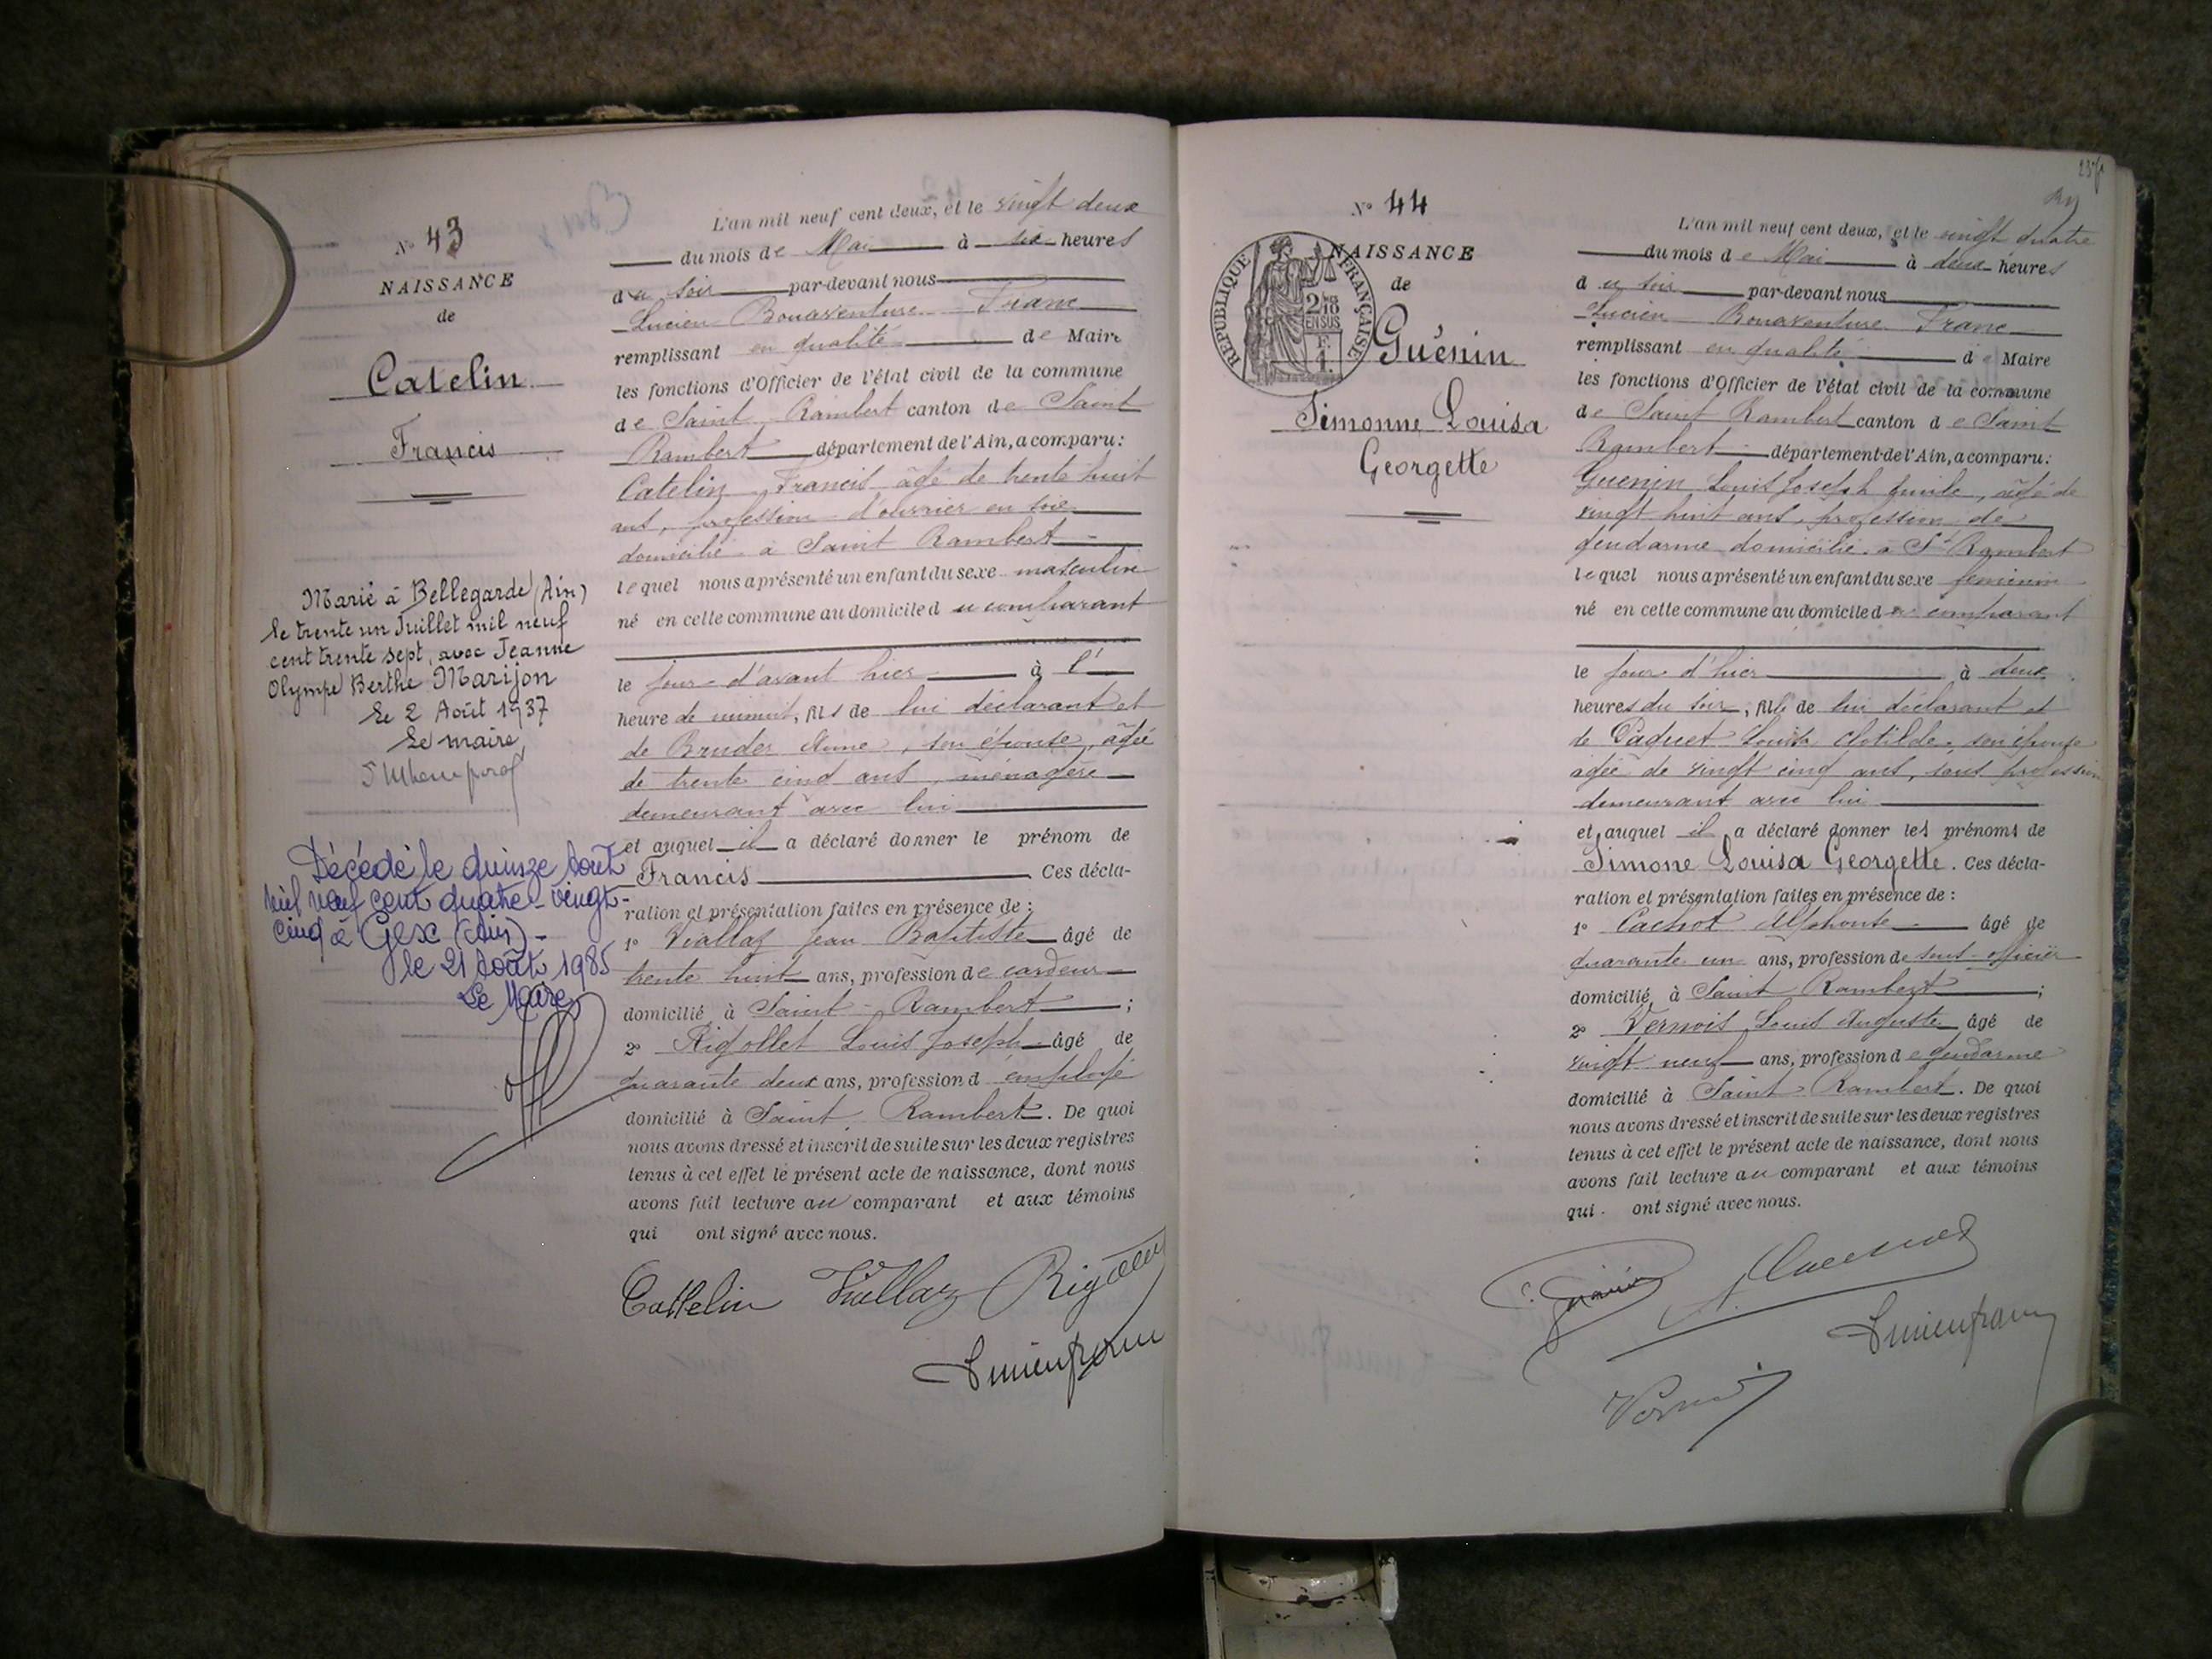 N° 43
NAISSANCE
de
Catelin
Francis
Marié à Bellegarde (Ain)
le trente un Juillet mil neuf
cent trente sept, avec Jeanne
Olympe Berthe Marijon
Le 2 Août 1937
Le maire
Décédé le quinze Août
mil neuf cent quatre-vingt-
cinq à Gex (Ain) -
le 21 Août 1985
Le Maire,
L'an mil neuf cent deux, et le vingt deux
du mois de Mai à six heures
du soir par-devant nous
Lucien Bonaventure Franc
remplissant en qualité de Maire
les fonctions d'Officier de l'état civil de la commune
de Saint Rambert canton de Saint
Rambert département de l'Ain, a comparu:
Catelin Francis âgé de trente huit
ans, profession d'ouvrier en soie
domicilié à Saint Rambert
lequel nous a présenté un enfant du sexe masculin
né en cette commune au domicile du comparant
le jour d'avant hier à l'
heure de minuit, fils de lui déclarant et
de Bruder Anne, son épouse, âgée
de trente cinq ans, ménagère
demeurant avec lui
et auquel il a déclaré donner le prénom de
Francis Ces décla-
ration et présentation faites en présence de :
1° Viallaz Jean Baptiste âgé de
trente huit ans, profession de cardeur
domicilié à Saint-Rambert ;
2° Rigollet Louis Joseph âgé de
quarante deux ans, profession d'employé
domicilié à Saint Rambert. De quoi
nous avons dressé et inscrit de suite sur les deux registres
tenus à cet effet le présent acte de naissance, dont nous
avons fait lecture au comparant et aux témoins
qui ont signé avec nous.
Cattelin Viallaz Rigollet
Lucien franc
N° 44
NAISSANCE
de
RÉPUBLIQUE FRANÇAISE
2/10
EN SUS
F.
1.
Guénin
Simonne Louisa
Georgette
L'an mil neuf cent deux, et le vingt quatre
du mois de Mai à deux heures
du soir par-devant nous
Lucien Bonaventure Franc
remplissant en qualité de Maire
les fonctions d'Officier de l'état civil de la commune
de Saint Rambert canton de Saint
Rambert département de l'Ain, a comparu:
Guenin Louis Joseph Emile, âgé de
vingt huit ans, profession de
gendarme domicilié à St Rambert
lequel nous a présenté un enfant du sexe feminin
né en cette commune au domicile du comparant
le jour d'hier à deux
heures du soir, fille de lui déclarant et
de Paquet Louisa Clotilde, son épouse
âgée de vingt cinq ans, sans profession
demeurant avec lui
et auquel il a déclaré donner les prénoms de
Simone Louisa Georgette. Ces décla-
ration et présentation faites en présence de :
1° Cachot Alphonse âgé de
quarante un ans, profession de sous-officier
domicilié à Saint Rambert ;
2° Vernois Louis Auguste âgé de
vingt neuf ans, profession de gendarme
domicilié à Saint-Rambert. De quoi
nous avons dressé et inscrit de suite sur les deux registres
tenus à cet effet le présent acte de naissance, dont nous
avons fait lecture au comparant et aux témoins
qui ont signé avec nous.
Guénin
Lucien franc
Vernois